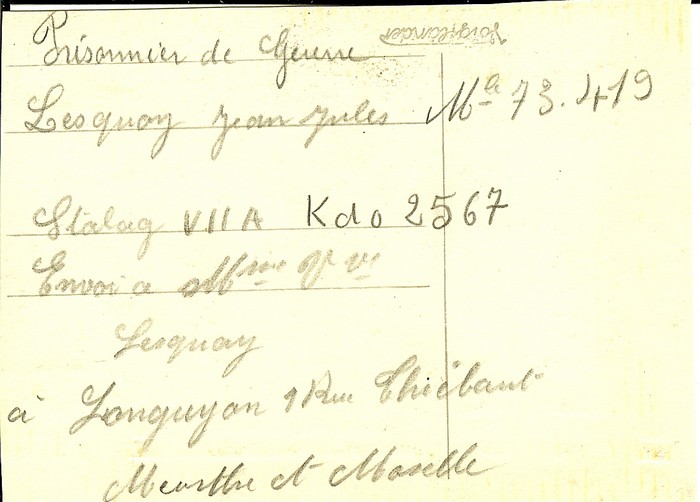 Prisonnier de Guerre
Lesquoy Jean Jules Mle 73.419
Stalag VII A Kdo 2567
Envoi a Mme Vve
Lesquoy
à Longuyon 9 Rue Thiébaut
Meurthe et Moselle